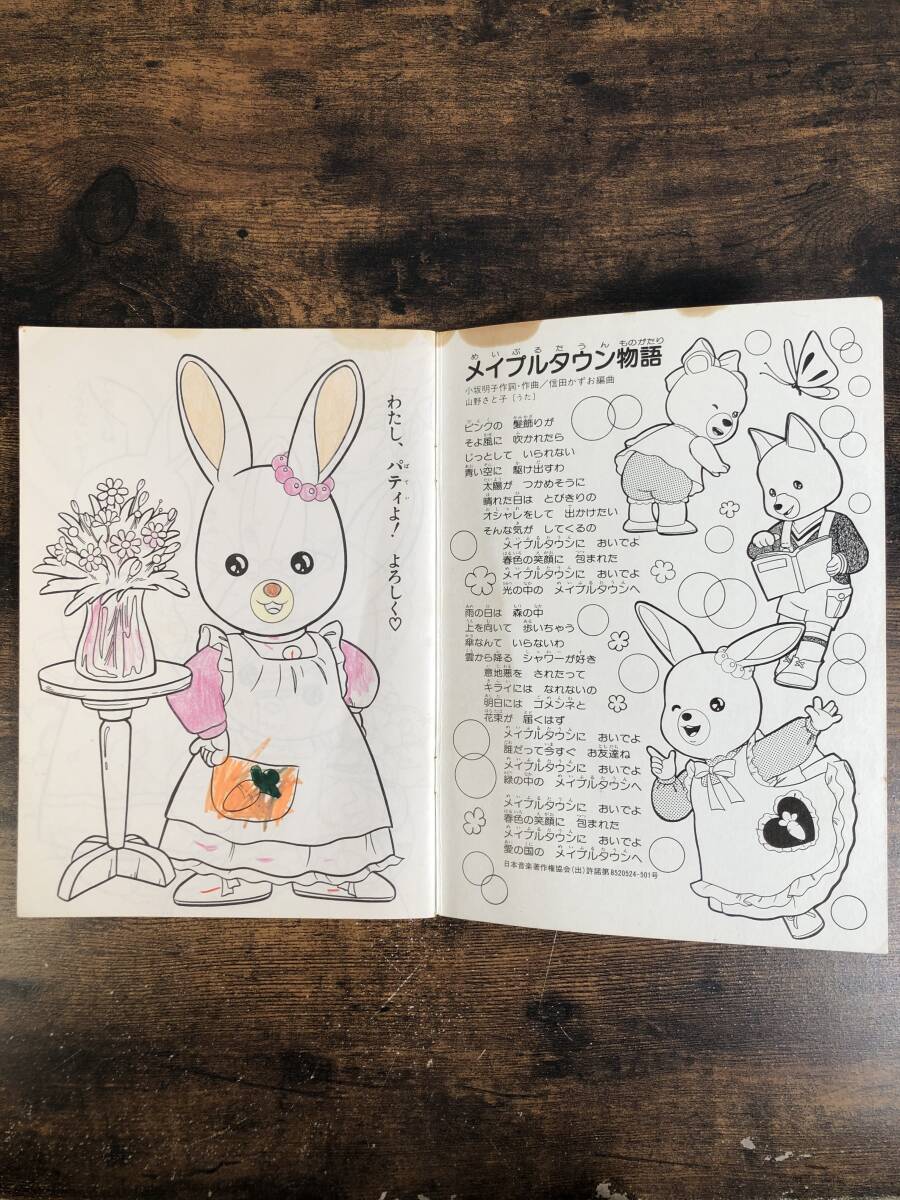 わたし、パティよ! よろしく♡
メイプルタウン物語
小坂明子作詞・作曲/信田かずお編曲
山野さと子〔うた〕
ピンクの 髪飾りが
そよ風に 吹かれたら
じっとして いられない
青い空に 駆け出すわ
太陽が つかめそうに
晴れた日は とびきりの
オシャレをして 出かけたい
そんな気が してくるの
メイプルタウンに おいでよ
春色の笑顔に 包まれた
メイプルタウンに おいでよ
光の中の メイプルタウンへ
雨の日は 森の中
上を向いて 歩いちゃう
傘なんて いらないわ
雲から降る シャワーが好き
意地悪を されたって
キライには なれないの
明日には ゴメンネと
花束が 届くはず
メイプルタウンに おいでよ
誰だって今すぐ お友達ね
メイプルタウンに おいでよ
緑の中の メイプルタウンへ
メイプルタウンに おいでよ
春色の笑顔に 包まれた
メイプルタウンに おいでよ
愛の国の メイプルタウンへ
日本音楽著作権協会(出)許諾第8520524-501号